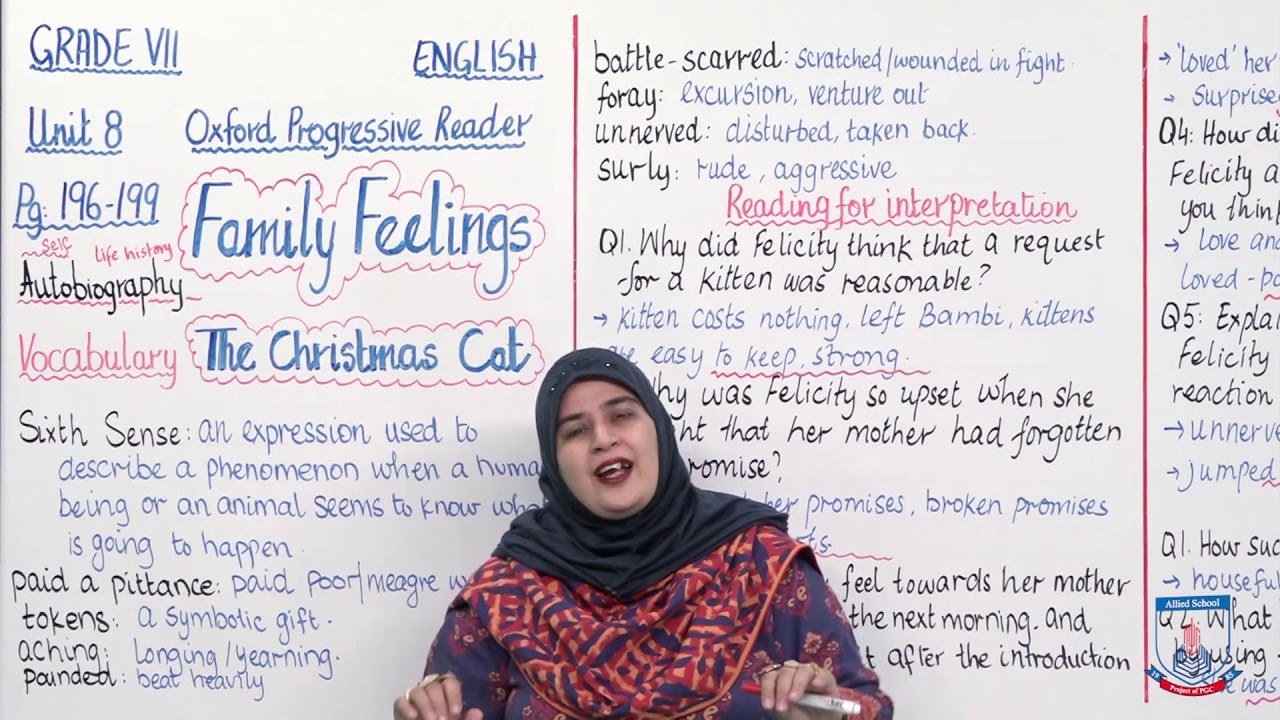 GRADE VII
ENGLISH
Unit 8 Oxford Progressive Reader
Pg: 196-199
Family Feelings
self life history
Autobiography
Vocabulary
The Christmas Cat
Sixth Sense: an expression used to
describe a phenomenon when a huma
being or an animal seems to know wh
is going to happen.
paid a pittance: paid poor/meagre w
tokens: a symbolic gift.
aching: longing/yearning.
pounded: beat heavily
battle-scarred: scratched/wounded in fight.
foray: excursion, venture out
unnerved: disturbed, taken back.
surly: rude, aggressive
Reading for interpretation
Q1. Why did Felicity think that a request
for a kitten was reasonable?
→ kitten costs nothing, left Bambi, kittens
are easy to keep, strong.
hy was Felicity so upset when she
ght that her mother had forgotten
romise?
her promises, broken promises
ts.
feel towards her mother
the next morning, and
t after the introduction
→ 'loved' her
→ Surprise
Q4: How di
Felicity a
you thin
→ love and
loved-p
Q5: Explai
Felicity
reaction
→ unnerve
→ jumped
Q1. How suc
→ houseful
Q2. What
using
e was
Allied School
19 85
Project of PGC